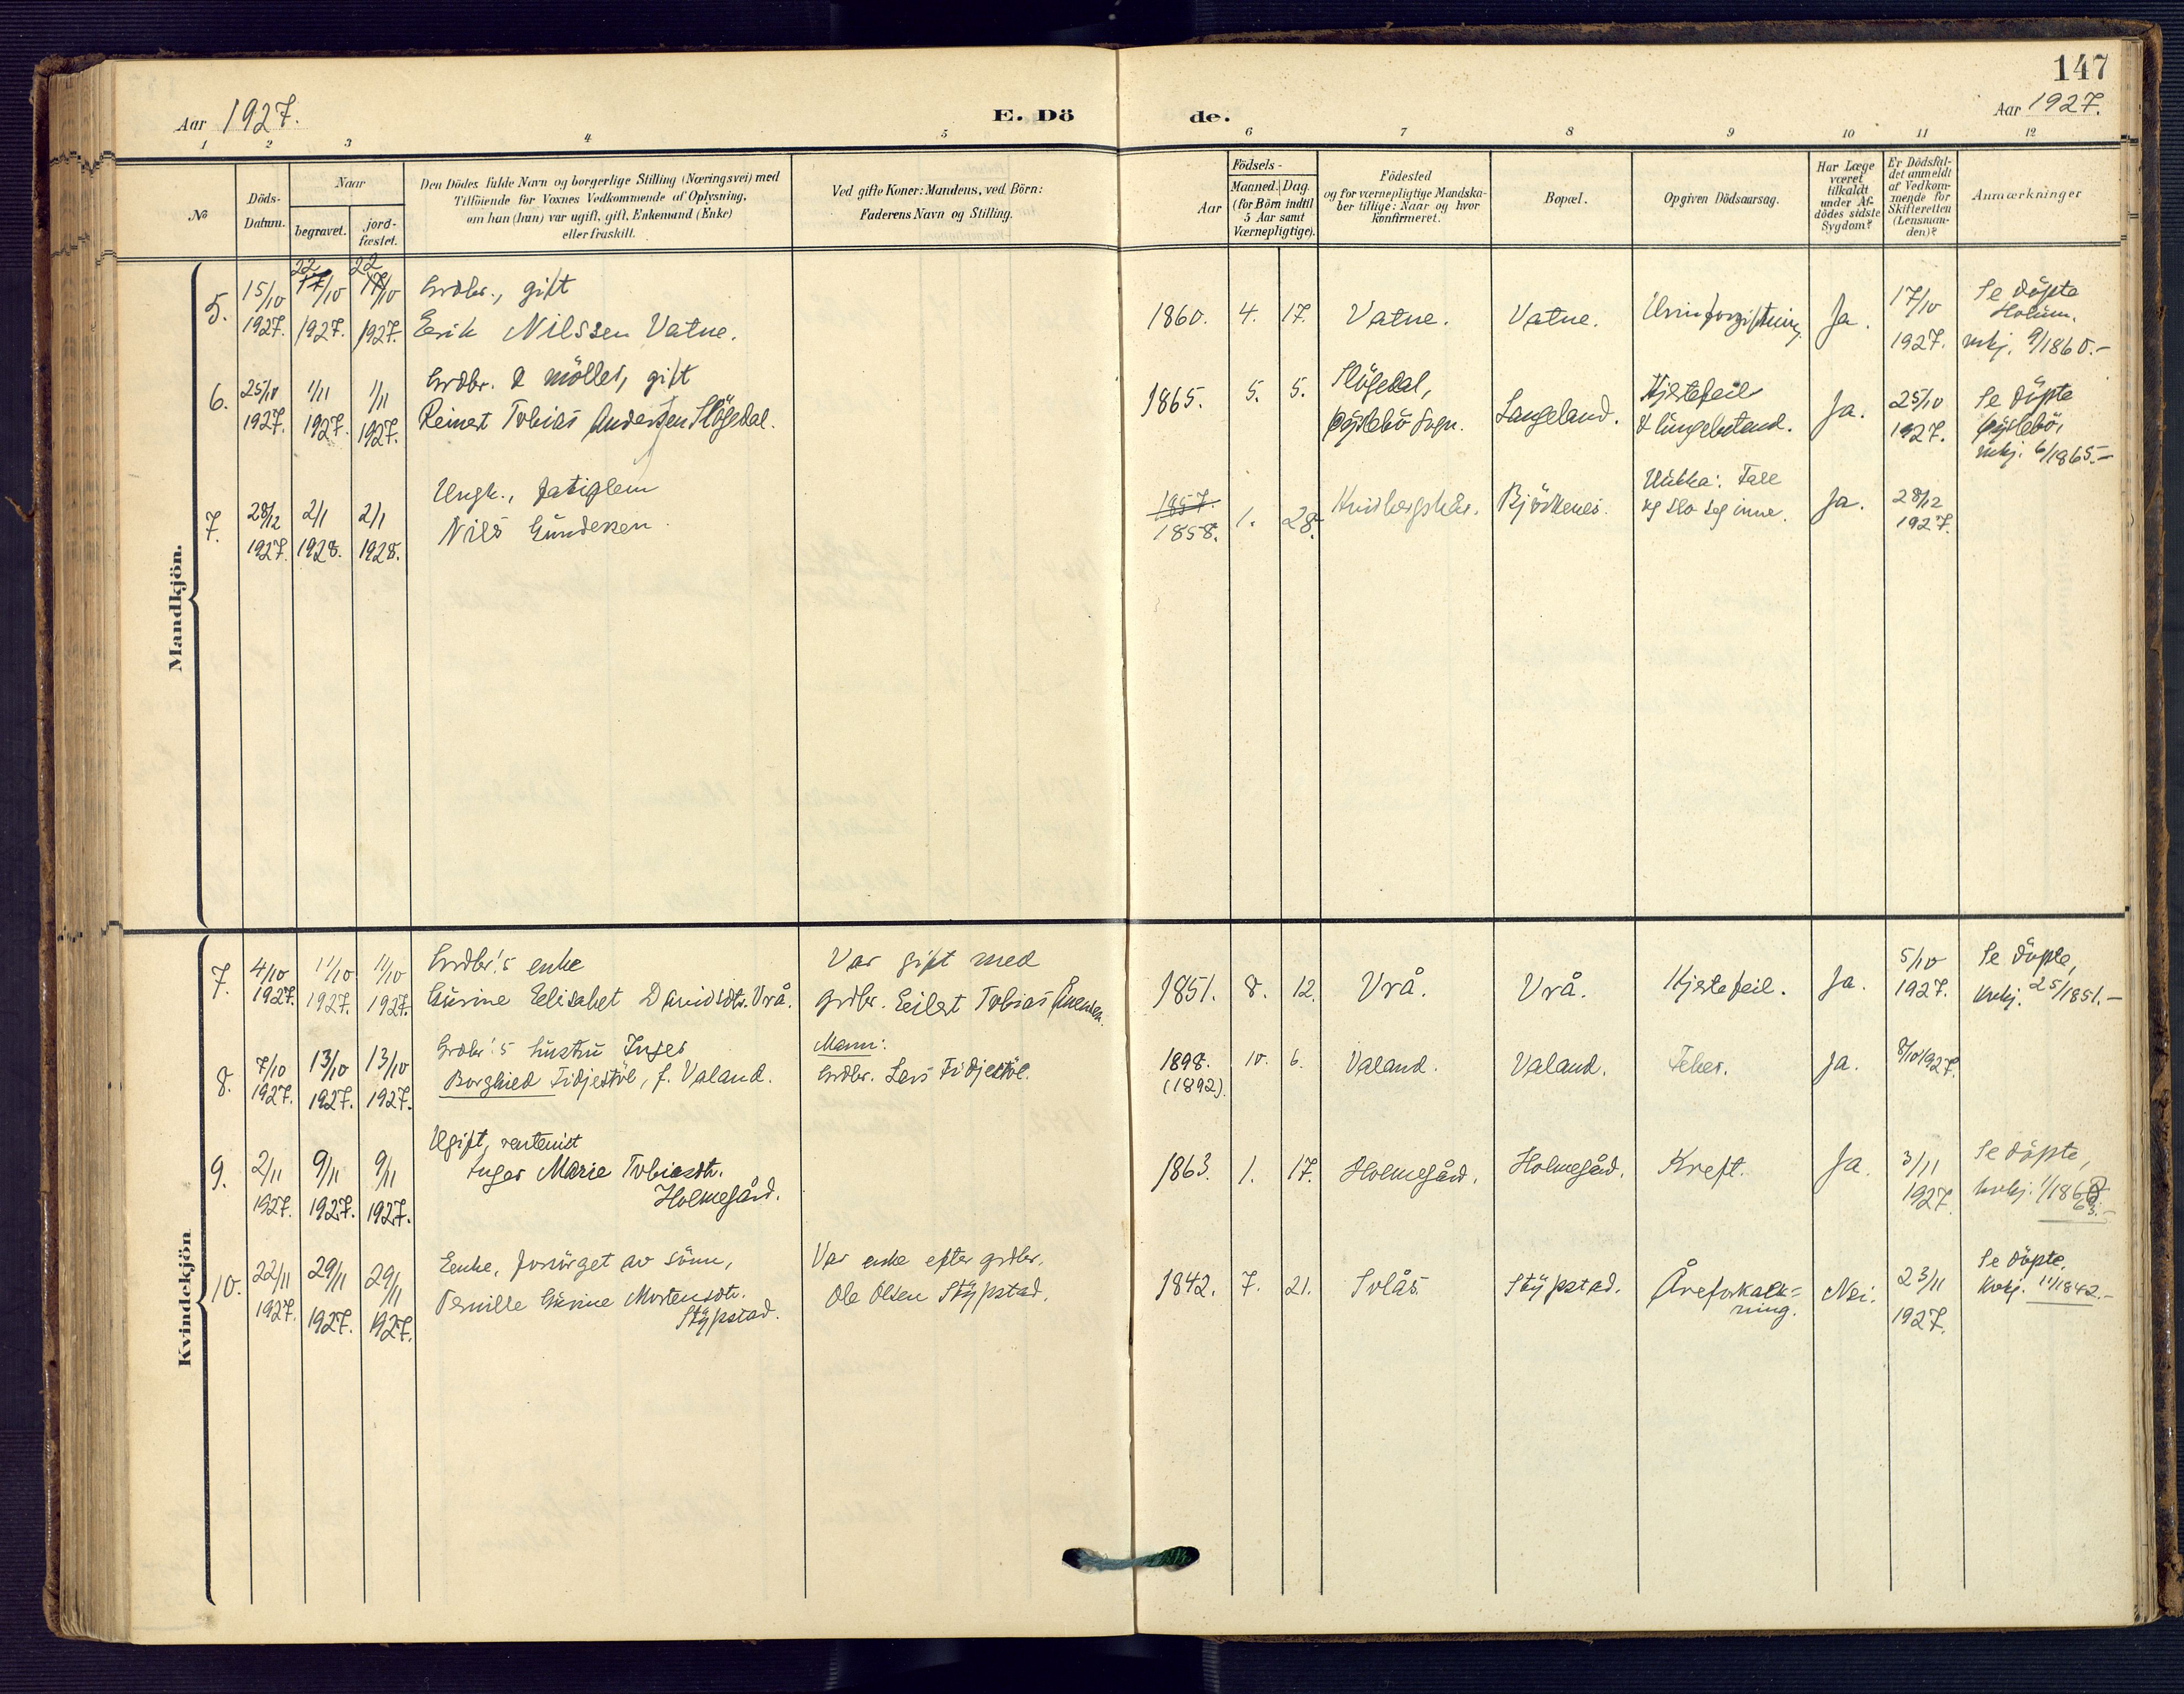 147
Aar 1927.
E. Dö de.
Aar 1927.
1 2 3 4 5 6 7 8 9 10 11 12
№
Döds-
Datum.
Naar
begravet.
jord-
fæstet.
Den Dödes fulde Navn og borgerlige Stilling (Næringsvei) med
Tilföiende for Voxnes Vedkommende af Oplysning,
om han (hun) var ugift, gift, Enkemand (Enke)
eller fraskilt.
Ved gifte Koner: Mandens, ved Börn:
Faderens Navn og Stilling.
Aar
Födsels-
Maaned. Dag.
(for Börn indtil
5 Aar samt
Værnepligtige).
Födested
og for værnepligtige Mandska-
ber tillige: Naar og hvor
konfirmeret.
Bopæl.
Opgiven Dödsaarsag.
Har Læge
været
tilkaldt
under Af-
dödes sidste
Sygdom?
Er Dödsfal-
det anmeldt
af Vedkom-
mende for
Skifteretten
(Lensman-
den)?
Anmærkninger
Mandkjön.
5.
15/10
1927.
22
17/10
1927.
22
17/10
1927.
Grdbr., gift
Eerik Nilssen Vatne.
1860. 4. 17.
Vatne.
Vatne.
Urinforgiftning
Ja.
17/10
1927.
Se döpte
Holum.
mkj. 9/1860.-
6.
25/10
1927.
1/11
1927.
1/11
1927.
Grdbr. & möller, gift
Reinert Tobias Andersen Slögedal.
1865. 5. 5.
Slögedal,
Øyslebö Sogn.
Langeland.
Hjertefeil
& lungebetend.
Ja.
25/10
1927.
Se döpte
Øyslebö,
mkj. 6/1865.-
7.
28/12
1927.
2/1
1928.
2/1
1928.
Ungk., fatiglem
Nils Gundersen.
1857.
1858.
1. 28.
Björkenes.
Ulukka: Fall
og slo seg inne.
Ja.
28/12
1927.
Kvindekjön
7.
4/10
1927.
11/10
1927.
11/10
1927.
Grdbr's enke
Gurine Eelisabet Davidsdtr. Vrå.
Var gift med
grdbr. Eilert Tobias Ånensen.
1851. 8. 12.
Vrå.
Vrå.
Hjertefeil.
Ja.
5/10
1927.
Se döpte,
kvkj. 25/1851.-
8.
7/10
1927.
13/10
1927.
13/10
1927.
Grdbr's hustru Inger
Borghied Fidjestöl, f. Valand.
Mann:
Grdbr. Lars Fidjestöl.
1898.
(1892).
10. 6.
Valand.
Valand.
Ja.
8/10 1927.
9.
2/11
1927.
9/11
1927.
9/11
1927.
Ugift, rentenist
Inger Marie Tobiasdtr.
Holmegård.
1863. 1. 17.
Holmegård.
Holmegård.
Kreft.
Ja.
3/11
1927.
Se döpte,
kvkj. 1/1863.
63.-
10.
22/11
1927.
29/11
1927.
29/11
1927.
Eenke, forsörget av sönn,
Pernille Gurine Mortensdtr.
Stÿpstad.
Var enke efter grdbr.
Ole Olsen Stÿpstad.
1842. 7. 21.
Solås.
Stÿpstad.
Åreforkalk=
ning.
Nei.
23/11
1927.
Se döpte.
kvkj. 11/1842.-